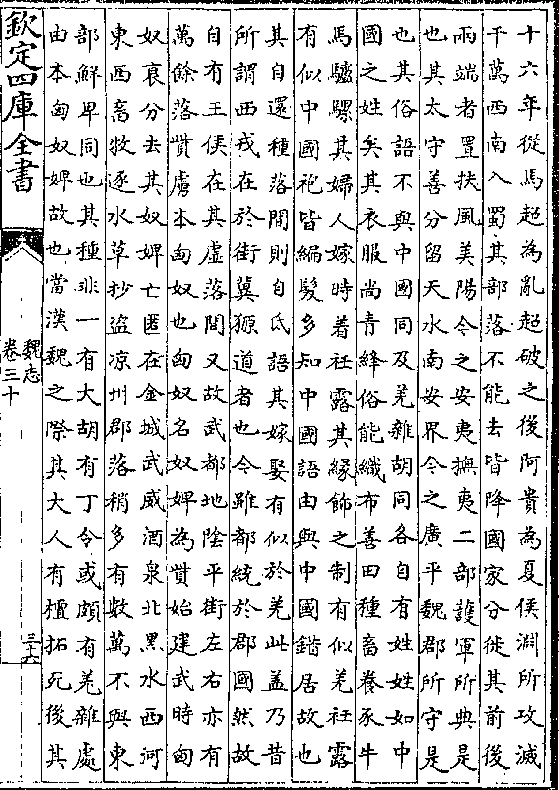 十六年從馬超為亂超破之後阿貴為夏侯淵所攻滅
千萬西南入蜀其部落不能去皆降國家分徙其前後
兩端者置扶風美陽今之安夷撫夷二部護軍所典是
也其太守善分留天水南安界今之廣平魏郡所守是
也其俗語不與中國同及羌雜胡同各自有姓姓如中
國之姓矣其衣服尚青絳俗能織布善田種畜養豕牛
馬驢騾其婦人嫁時着衽露其緣飾之制有似羌衽露
有似中國袍皆編髮多知中國語由與中國錯居故也
其自還種落間則自氐語其嫁娶有似於羌此蓋乃昔
所謂西戎在於街冀獂道者也今雖都統於郡國然故
自有王侯在其虛落間又故武都地陰平街左右亦有
萬餘落貲虜本匈奴也匈奴名奴婢為貲始建武時匈
奴衰分去其奴婢亡匿在金城武威酒泉北黑水西河
東西畜牧逐水草抄盜凉州郡落稍多有數萬不與東
部鮮卑同也其種非一有大胡有丁令或頗有羌雜處
由本匈奴婢故也當漢魏之際其大人有檀拓死後其
欽定四庫全書
魏志
卷三十
三十六